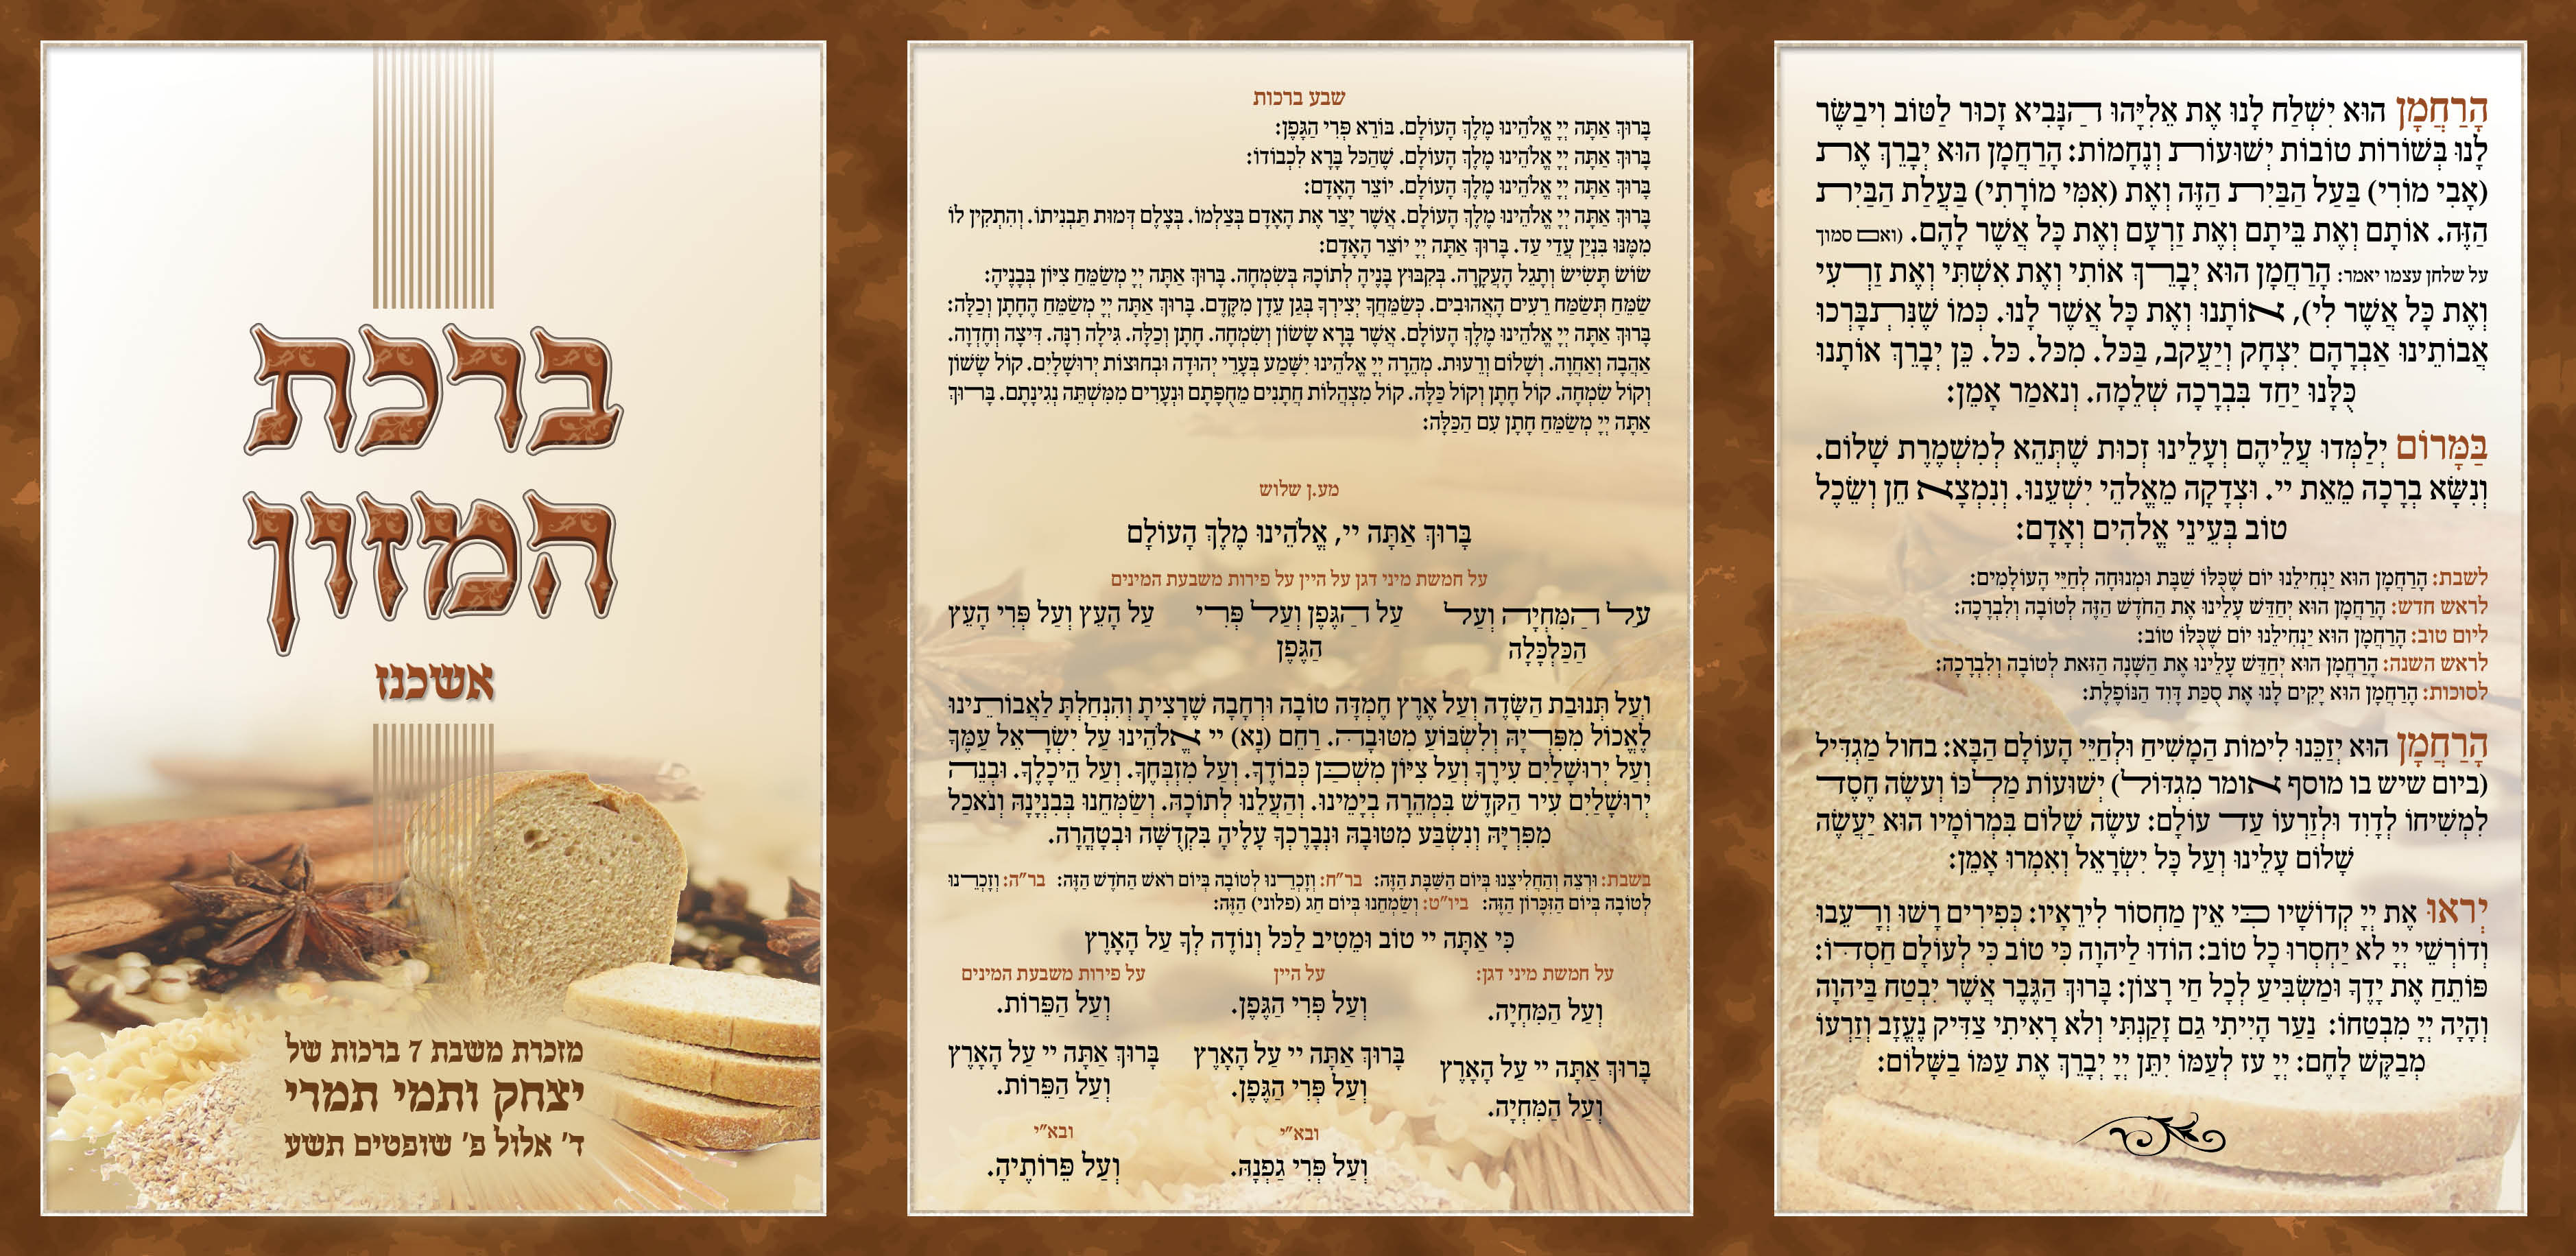 ברכת
המזון
אשכנז
מזכרת משבת 7 ברכות של
יצחק ותמי תמרי
ד' אלול פ' שופטים תשע
שבע ברכות
בָּרוּךְ אַתָּה יְיָ אֱלֹהֵינוּ מֶלֶךְ הָעוֹלָם. בּוֹרֵא פְּרִי הַגָּפֶן:
בָּרוּךְ אַתָּה יְיָ אֱלֹהֵינוּ מֶלֶךְ הָעוֹלָם. שֶׁהַכֹּל בָּרָא לִכְבוֹדוֹ:
בָּרוּךְ אַתָּה יְיָ אֱלֹהֵינוּ מֶלֶךְ הָעוֹלָם. יוֹצֵר הָאָדָם:
בָּרוּךְ אַתָּה יְיָ אֱלֹהֵינוּ מֶלֶךְ הָעוֹלָם. אֲשֶׁר יָצַר אֶת הָאָדָם בְּצַלְמוֹ. בְּצֶלֶם דְּמוּת תַּבְנִיתוֹ. וְהִתְקִין לוֹ
מִמֶּנּוּ בִּנְיַן עֲדֵי עַד. בָּרוּךְ אַתָּה יְיָ יוֹצֵר הָאָדָם:
שׂוֹשׂ תָּשִׂישׂ וְתָגֵל הָעֲקָרָה. בְּקִבּוּץ בָּנֶיהָ לְתוֹכָהּ בְּשִׂמְחָה. בָּרוּךְ אַתָּה יְיָ מְשַׂמֵּחַ צִיּוֹן בְּבָנֶיהָ:
שַׂמֵּחַ תְּשַׂמַּח רֵעִים הָאֲהוּבִים. כְּשַׂמֵּחֲךָ יְצִירְךָ בְּגַן עֵדֶן מִקֶּדֶם. בָּרוּךְ אַתָּה יְיָ מְשַׂמֵּחַ הֶחָתָן וְכַלָּה:
בָּרוּךְ אַתָּה יְיָ אֱלֹהֵינוּ מֶלֶךְ הָעוֹלָם. אֲשֶׁר בָּרָא שָׂשׂוֹן וְשִׂמְחָה. חָתָן וְכַלָּה. גִּילָה רִנָּה. דִּיצָה וְחֶדְוָה.
אַהֲבָה וְאַחֲוָה. וְשָׁלוֹם וְרֵעוּת. מְהֵרָה יְיָ אֱלֹהֵינוּ יִשָּׁמַע בְּעָרֵי יְהוּדָה וּבְחוּצוֹת יְרוּשָׁלָיִם. קוֹל שָׂשׂוֹן
וְקוֹל שִׂמְחָה. קוֹל חָתָן וְקוֹל כַּלָּה. קוֹל מִצְהֲלוֹת חֲתָנִים מֵחֻפָּתָם וּנְעָרִים מִמִּשְׁתֵּה נְגִינָתָם. בָּרוּךְ
אַתָּה יְיָ מְשַׂמֵּחַ חָתָן עִם הַכַּלָּה:
מע.ן שלוש
בָּרוּךְ אַתָּה יי, אֱלֹהֵינוּ מֶלֶךְ הָעוֹלָם
על חמשת מיני דגן על היין על פירות משבעת המינים
עַל הַמִּחְיָה וְעַל עַל הַגֶּפֶן וְעַל פְּרִי עַל הָעֵץ וְעַל פְּרִי הָעֵץ
הַכַּלְכָּלָה הַגֶּפֶן
וְעַל תְּנוּבַת הַשָּׂדֶה וְעַל אֶרֶץ חֶמְדָּה טוֹבָה וּרְחָבָה שֶׁרָצִיתָ וְהִנְחַלְתָּ לַאֲבוֹתֵינוּ
לֶאֱכוֹל מִפִּרְיָהּ וְלִשְׂבּוֹעַ מִטּוּבָהּ. רַחֵם (נָא) יי אֱלֹהֵינוּ עַל יִשְׂרָאֵל עַמֶּךָ
וְעַל יְרוּשָׁלַיִם עִירֶךָ וְעַל צִיּוֹן מִשְׁכַּן כְּבוֹדֶךָ. וְעַל מִזְבְּחֶךָ. וְעַל הֵיכָלֶךָ. וּבְנֵה
יְרוּשָׁלַיִם עִיר הַקֹּדֶשׁ בִּמְהֵרָה בְיָמֵינוּ. וְהַעֲלֵנוּ לְתוֹכָהּ. וְשַׂמְּחֵנוּ בְּבִנְיָנָהּ וְנֹאכַל
מִפִּרְיָהּ וְנִשְׂבַּע מִטּוּבָהּ וּנְבָרֶכְךָ עָלֶיהָ בִּקְדֻשָּׁה וּבְטָהֳרָה.
בשבת: וּרְצֵה וְהַחֲלִיצֵנוּ בְּיוֹם הַשַּׁבָּת הַזֶּה: בר"ח: וְזָכְרֵנוּ לְטוֹבָה בְּיוֹם רֹאשׁ הַחֹדֶשׁ הַזֶּה: בר"ה: וְזָכְרֵנוּ
לְטוֹבָה בְּיוֹם הַזִּכָּרוֹן הַזֶּה: ביו"ט: וְשַׂמְּחֵנוּ בְּיוֹם חַג (פלוני) הַזֶּה:
כִּי אַתָּה יי טוֹב וּמֵטִיב לַכֹּל וְנוֹדֶה לְּךָ עַל הָאָרֶץ
על חמשת מיני דגן: על היין על פירות משבעת המינים
וְעַל הַמִּחְיָה. וְעַל פְּרִי הַגֶּפֶן. וְעַל הַפֵּרוֹת.
בָּרוּךְ אַתָּה יי עַל הָאָרֶץ בָּרוּךְ אַתָּה יי עַל הָאָרֶץ בָּרוּךְ אַתָּה יי עַל הָאָרֶץ
וְעַל הַמִּחְיָה. וְעַל פְּרִי הַגֶּפֶן. וְעַל הַפֵּרוֹת.
ובא"י ובא"י
וְעַל פְּרִי גַפְנָהּ. וְעַל פֵּרוֹתֶיהָ.
הָרַחֲמָן הוּא יִשְׁלַח לָנוּ אֶת אֵלִיָּהוּ הַנָּבִיא זָכוּר לַטּוֹב וִיבַשֶּׂר
לָנוּ בְּשׂוֹרוֹת טוֹבוֹת יְשׁוּעוֹת וְנֶחָמוֹת: הָרַחֲמָן הוּא יְבָרֵךְ אֶת
(אָבִי מוֹרִי) בַּעַל הַבַּיִת הַזֶּה וְאֶת (אִמִּי מוֹרָתִי) בַּעֲלַת הַבַּיִת
הַזֶּה. אוֹתָם וְאֶת בֵּיתָם וְאֶת זַרְעָם וְאֶת כָּל אֲשֶׁר לָהֶם. (ואם סמוך
על שלחן עצמו יאמר: הָרַחֲמָן הוּא יְבָרֵךְ אוֹתִי וְאֶת אִשְׁתִּי וְאֶת זַרְעִי
וְאֶת כָּל אֲשֶׁר לִי), אוֹתָנוּ וְאֶת כָּל אֲשֶׁר לָנוּ. כְּמוֹ שֶׁנִּתְבָּרְכוּ
אֲבוֹתֵינוּ אַבְרָהָם יִצְחָק וְיַעֲקֹב, בַּכֹּל. מִכֹּל. כֹּל. כֵּן יְבָרֵךְ אוֹתָנוּ
כֻּלָּנוּ יַחַד בִּבְרָכָה שְׁלֵמָה. וְנֹאמַר אָמֵן:
בַּמָּרוֹם יְלַמְּדוּ עֲלֵיהֶם וְעָלֵינוּ זְכוּת שֶׁתְּהֵא לְמִשְׁמֶרֶת שָׁלוֹם.
וְנִשָּׂא בְרָכָה מֵאֵת יי. וּצְדָקָה מֵאֱלֹהֵי יִשְׁעֵנוּ. וְנִמְצָא חֵן וְשֵׂכֶל
טוֹב בְּעֵינֵי אֱלֹהִים וְאָדָם:
לשבת: הָרַחֲמָן הוּא יַנְחִילֵנוּ יוֹם שֶׁכֻּלּוֹ שַׁבָּת וּמְנוּחָה לְחַיֵּי הָעוֹלָמִים:
לראש חדש: הָרַחֲמָן הוּא יְחַדֵּשׁ עָלֵינוּ אֶת הַחֹדֶשׁ הַזֶּה לְטוֹבָה וְלִבְרָכָה:
ליום טוב: הָרַחֲמָן הוּא יַנְחִילֵנוּ יוֹם שֶׁכֻּלּוֹ טוֹב:
לראש השנה: הָרַחֲמָן הוּא יְחַדֵּשׁ עָלֵינוּ אֶת הַשָּׁנָה הַזֹּאת לְטוֹבָה וְלִבְרָכָה:
לסוכות: הָרַחֲמָן הוּא יָקִים לָנוּ אֶת סֻכַּת דָּוִד הַנּוֹפֶלֶת:
הָרַחֲמָן הוּא יְזַכֵּנוּ לִימוֹת הַמָּשִׁיחַ וּלְחַיֵּי הָעוֹלָם הַבָּא: בחול מַגְדִּיל
(ביום שיש בו מוסף אומר מִגְדּוֹל) יְשׁוּעוֹת מַלְכּוֹ וְעֹשֶׂה חֶסֶד
לִמְשִׁיחוֹ לְדָוִד וּלְזַרְעוֹ עַד עוֹלָם: עֹשֶׂה שָׁלוֹם בִּמְרוֹמָיו הוּא יַעֲשֶׂה
שָׁלוֹם עָלֵינוּ וְעַל כָּל יִשְׂרָאֵל וְאִמְרוּ אָמֵן:
יְראוּ אֶת יְיָ קְדוֹשָׁיו כִּי אֵין מַחְסוֹר לִירֵאָיו: כְּפִירִים רָשׁוּ וְרָעֵבוּ
וְדוֹרְשֵׁי יְיָ לֹא יַחְסְרוּ כָל טוֹב: הוֹדוּ לַיהוָה כִּי טוֹב כִּי לְעוֹלָם חַסְדּוֹ:
פּוֹתֵחַ אֶת יָדֶךָ וּמַשְׂבִּיעַ לְכָל חַי רָצוֹן: בָּרוּךְ הַגֶּבֶר אֲשֶׁר יִבְטַח בַּיהוָה
וְהָיָה יְיָ מִבְטַחוֹ: נַעַר הָיִיתִי גַם זָקַנְתִּי וְלֹא רָאִיתִי צַדִּיק נֶעֱזָב וְזַרְעוֹ
מְבַקֶּשׁ לָחֶם: יְיָ עֹז לְעַמּוֹ יִתֵּן יְיָ יְבָרֵךְ אֶת עַמּוֹ בַשָּׁלוֹם: